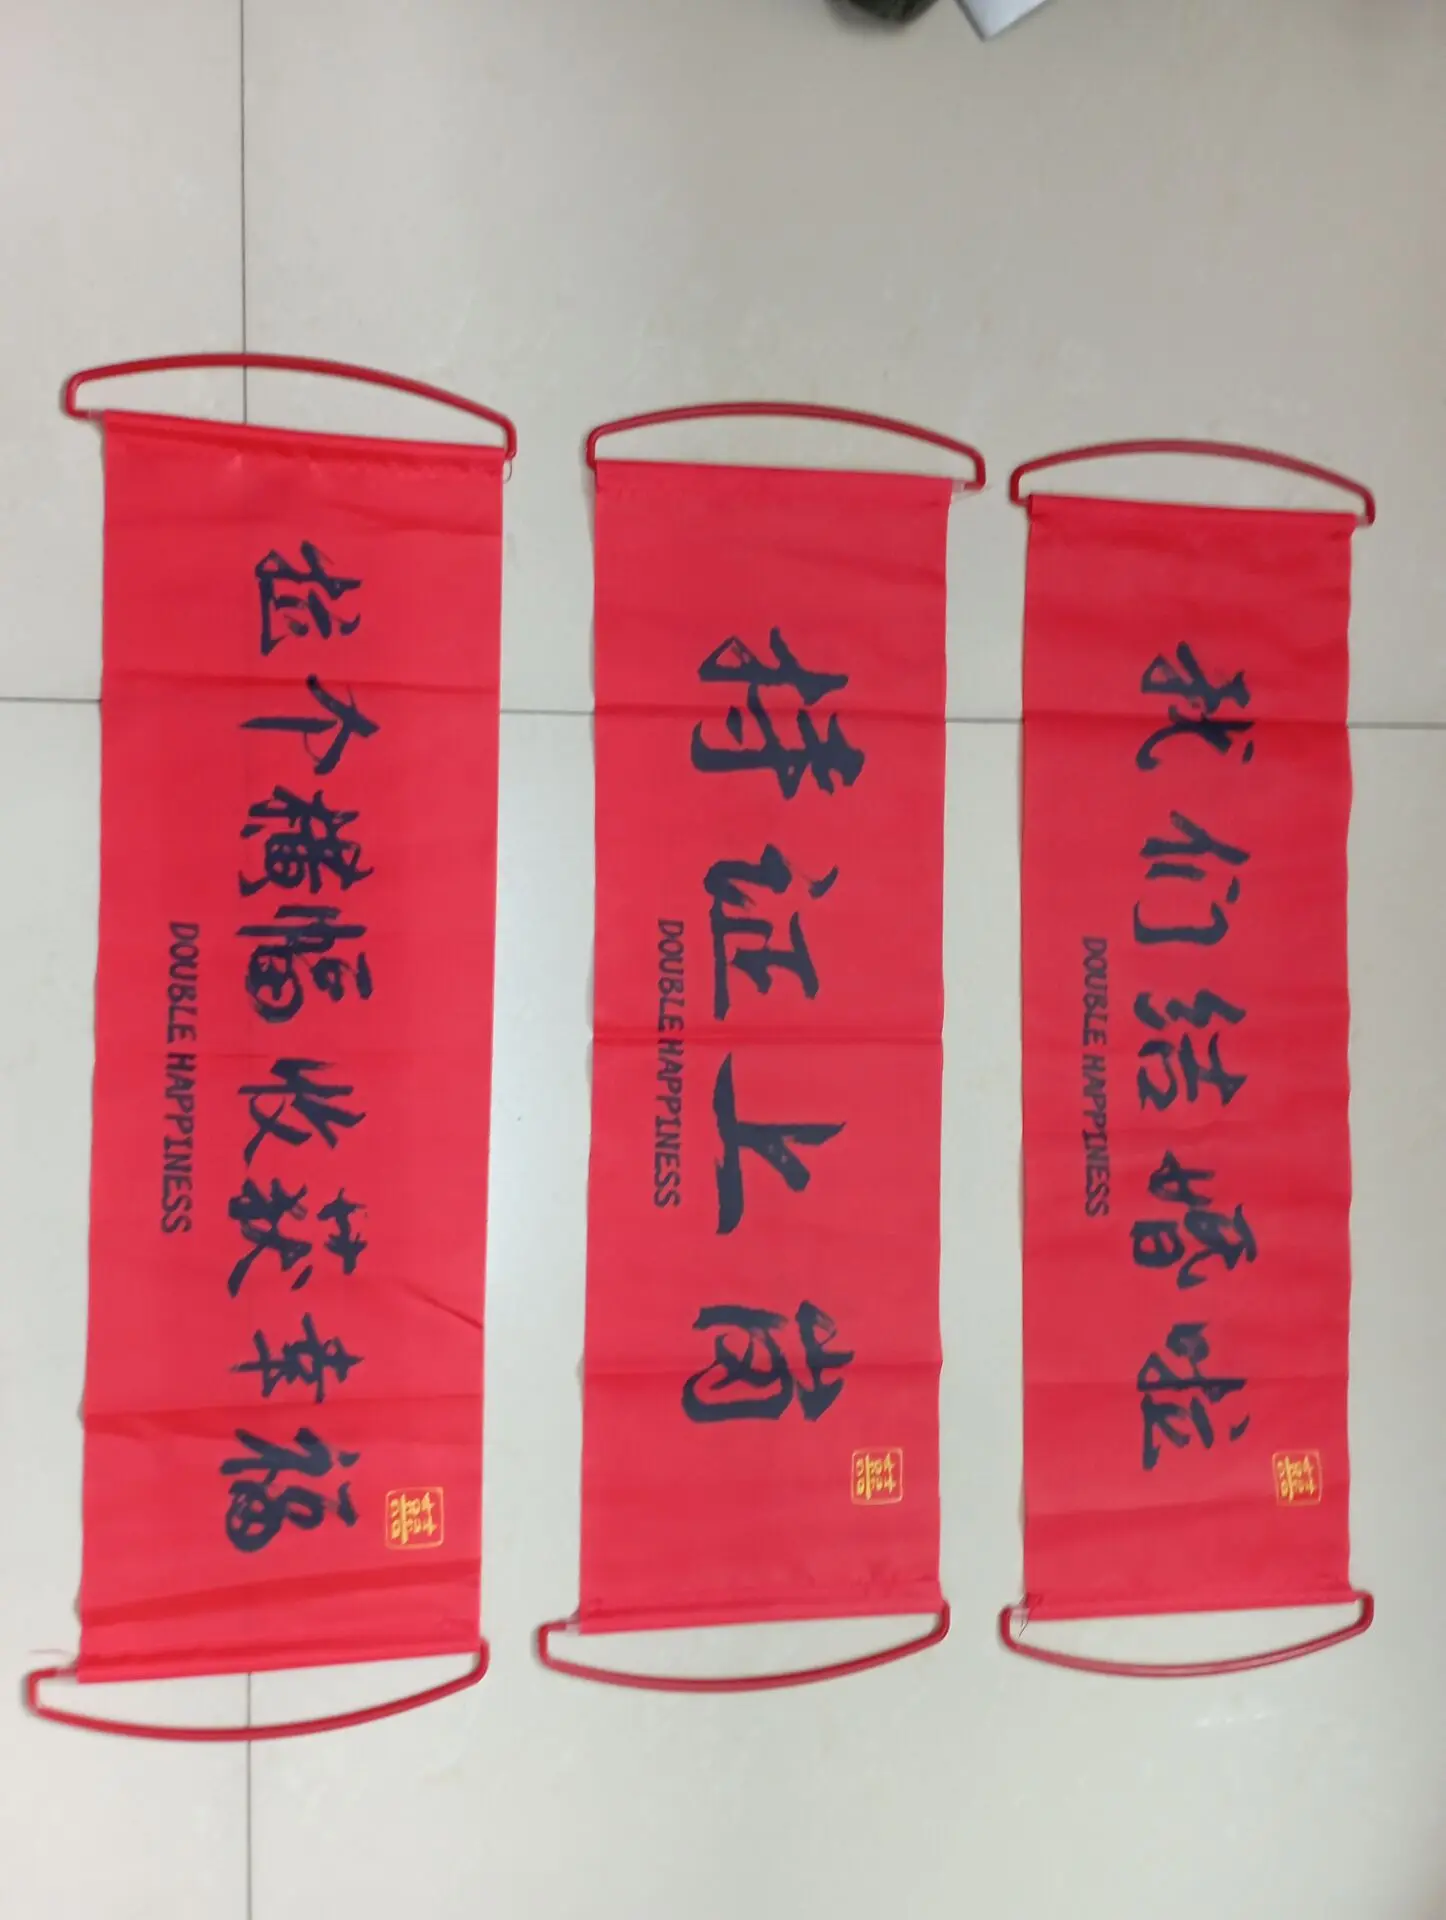 我们结婚啦
DOUBLE HAPPINESS
持证上岗
DOUBLE HAPPINESS
拉个横幅收获幸福
DOUBLE HAPPINESS